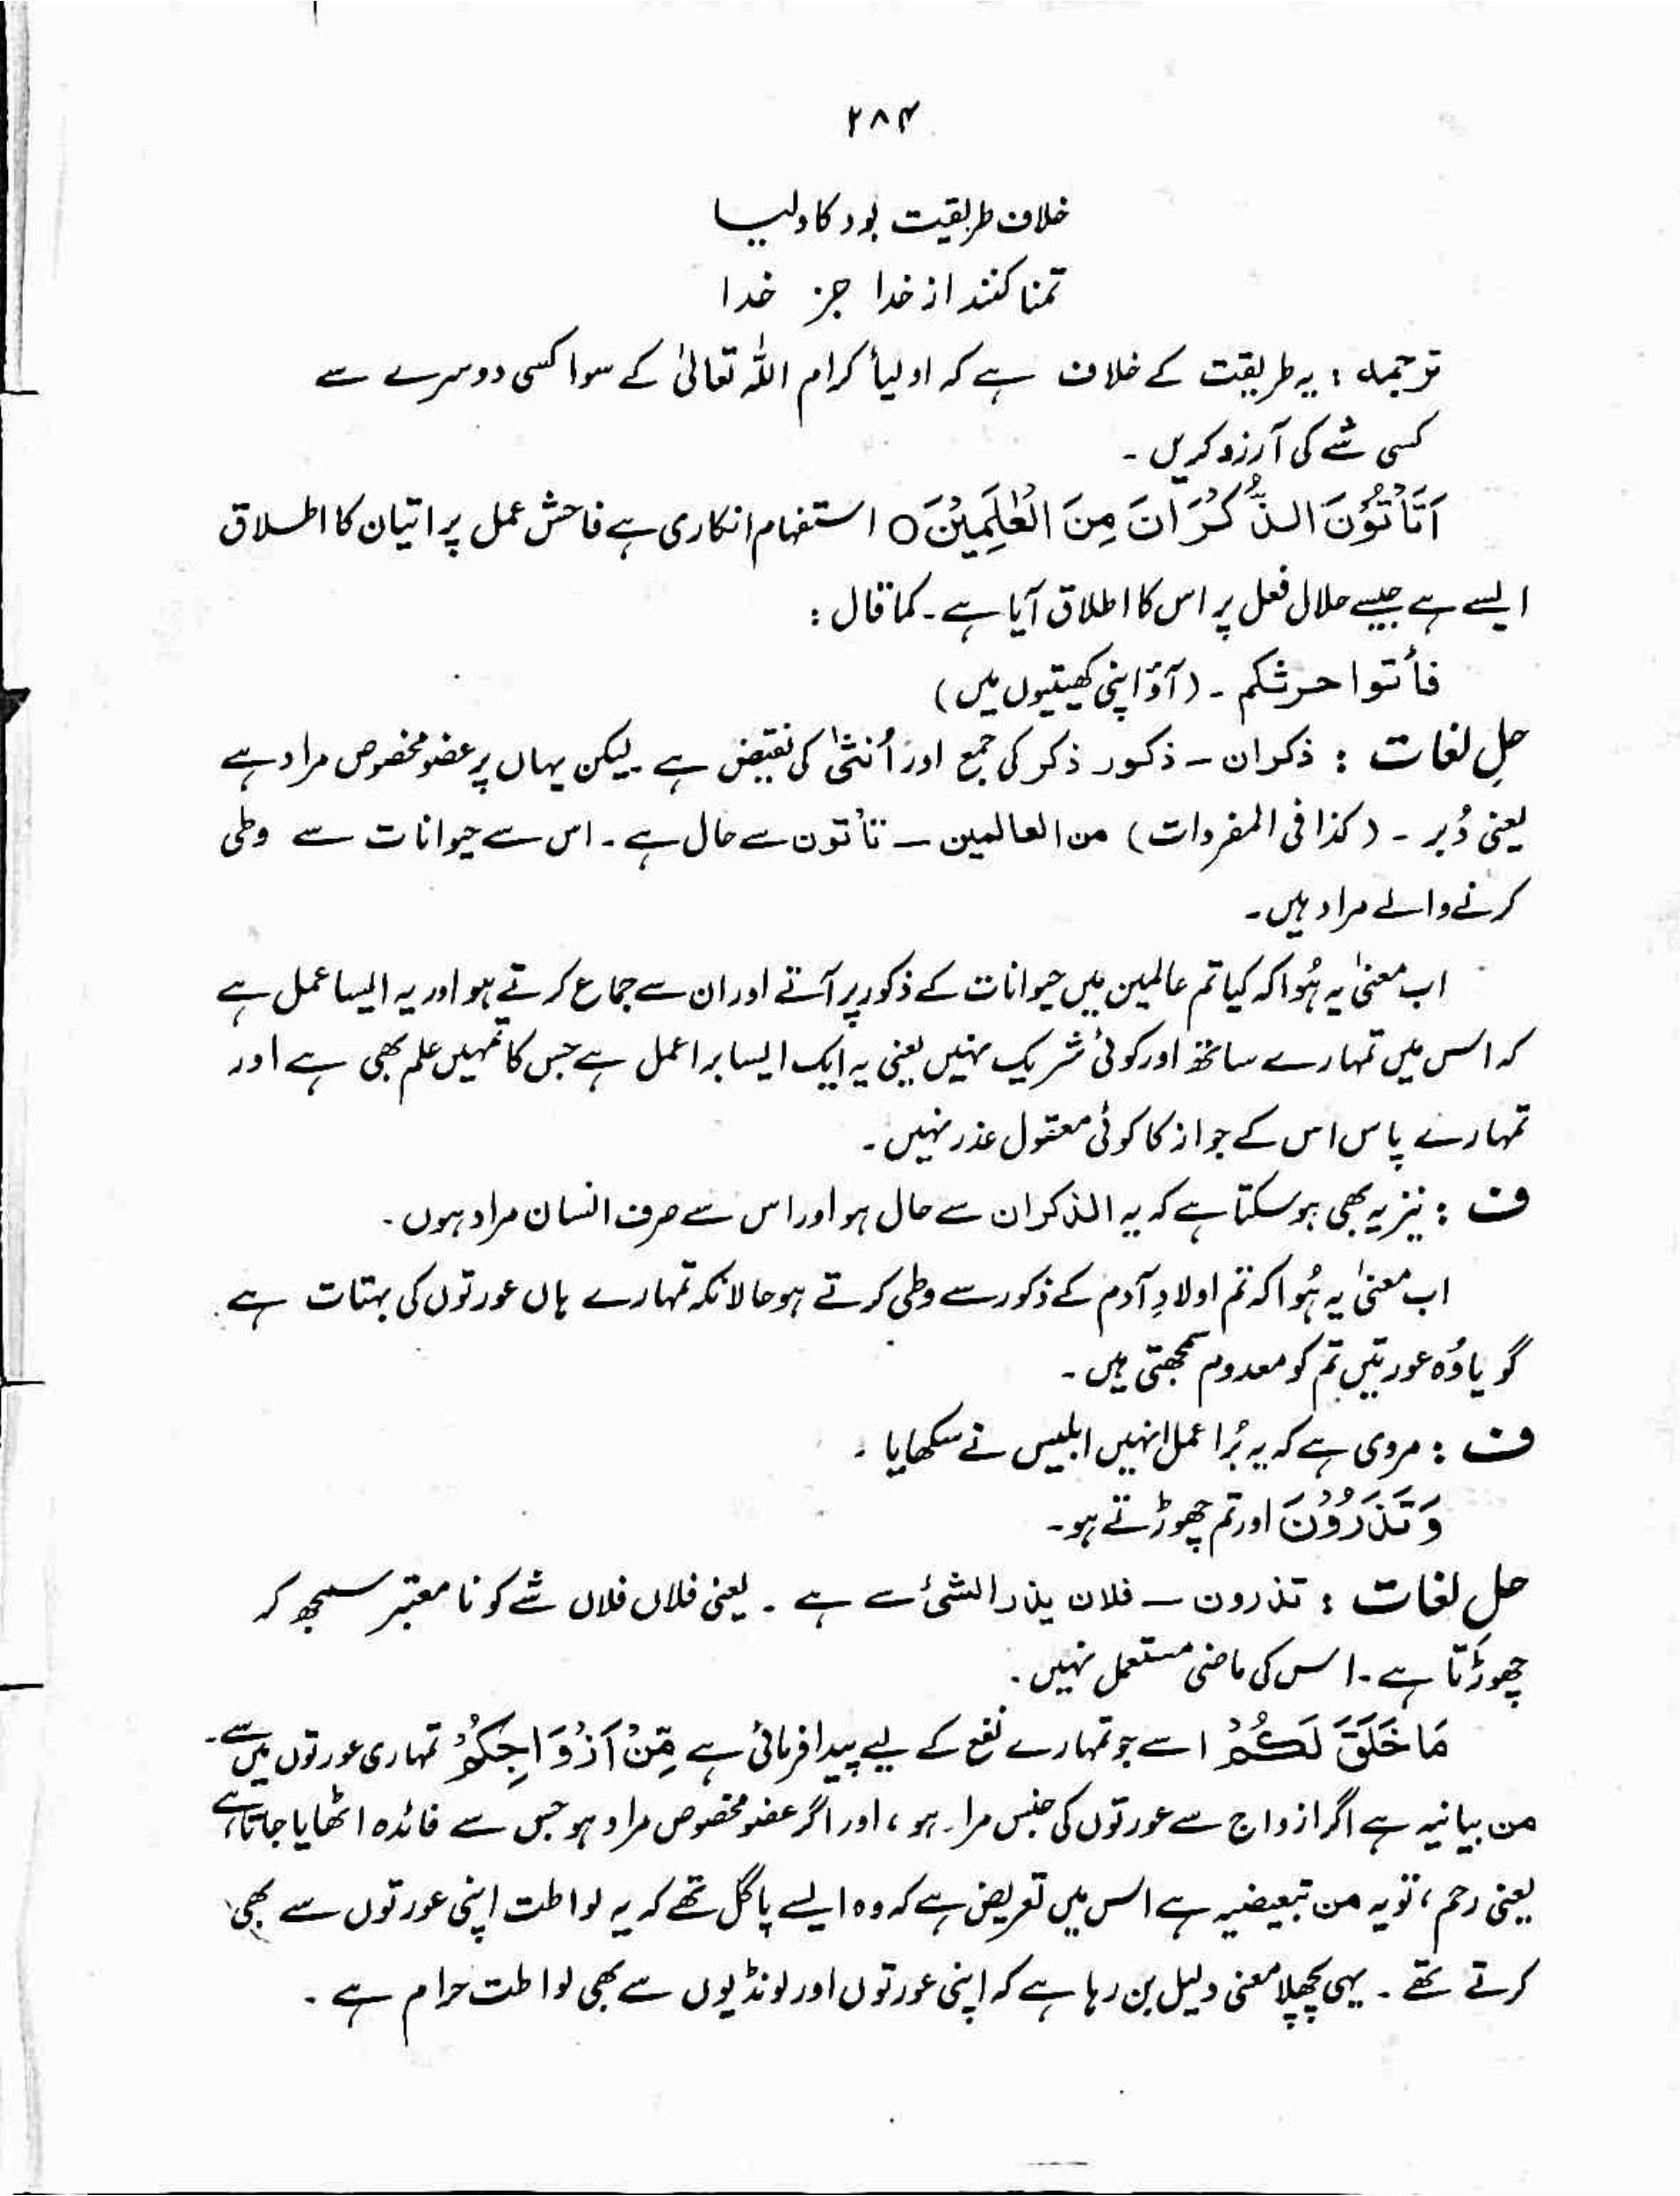 ۲۸۴
خلاف طریقیت بود کاولیا
تمنا کنند از خدا جز خدا
ترجمہ : یہ طریقت کے خلاف ہے کہ اولیأ کرام اللہ تعالیٰ کے سوا کسی دوسرے سے
کسی شے کی آرزو کریں ۔
اَتَاْتُوْنَ الذُّكْرَانَ مِنَ الْعٰلَمِيْنَ○ استفہام انکاری ہے فاحش عمل پر اتیان کا اطلاق
ایسے ہے جیسے حلال فعل پر اس کا اطلاق آیا ہے ۔ کما قال :
فأتوا حرثكم ۔ (آؤ اپنی کھیتیوں میں)
حلِ لغات : ذکران – ذکور ذکر کی جمع اور اُنثٰی کی نقیض ہے ۔ لیکن یہاں پر عضو مخصوص مراد ہے
یعنی دُبر ۔ (کذا فی المفردات) من العالمین – تأتون سے حال ہے ۔ اس سے حیوانات سے وطی
کرنے والے مراد ہیں ۔
اب معنیٰ یہ ہُوا کہ کیا تم عالمین میں حیوانات کے ذکور پر آتے اور ان سے جماع کرتے ہو اور یہ ایسا عمل ہے
کہ اس میں تمہارے ساتھ اور کوئی شریک نہیں یعنی یہ ایک ایسا برا عمل ہے جس کا تمہیں علم بھی ہے اور
تمہارے پاس اس کے جواز کا کوئی معقول عذر نہیں ۔
ف : نیز یہ بھی ہو سکتا ہے کہ یہ الذکران سے حال ہو اور اس سے صرف انسان مراد ہوں ۔
اب معنیٰ یہ ہُوا کہ تم اولادِ آدم کے ذکور سے وطی کرتے ہو حالانکہ تمہارے ہاں عورتوں کی بہتات ہے
گویا وُہ عورتیں تم کو معدوم سمجھتی ہیں ۔
ف : مروی ہے کہ یہ بُرا عمل انہیں ابلیس نے سکھایا ۔
وَتَذَرُوْنَ اور تم چھوڑتے ہو ۔
حل لغات : تذرون – فلان یذر الشئ سے ہے ۔ یعنی فلاں فلاں شے کو نا معتبر سمجھ کر
چھوڑتا ہے ۔ اس کی ماضی مستعمل نہیں ۔
مَا خَلَقَ لَكُمْ اسے جو تمہارے نفع کے لیے پیدا فرمائی ہے مِّنْ اَزْوَاجِكُمْ تمہاری عورتوں میں سے ۔
من بیانیہ ہے اگر ازواج سے عورتوں کی جنس مراد ہو ، اور اگر عضو مخصوص مراد ہو جس سے فائدہ اٹھایا جاتا ہے
یعنی رحم ، تو یہ من تبعیضیہ ہے اس میں تعریض ہے کہ وہ ایسے پاگل تھے کہ یہ لواطت اپنی عورتوں سے بھی
کرتے تھے ۔ یہی پچھلا معنی دلیل بن رہا ہے کہ اپنی عورتوں اور لونڈیوں سے بھی لواطت حرام ہے ۔